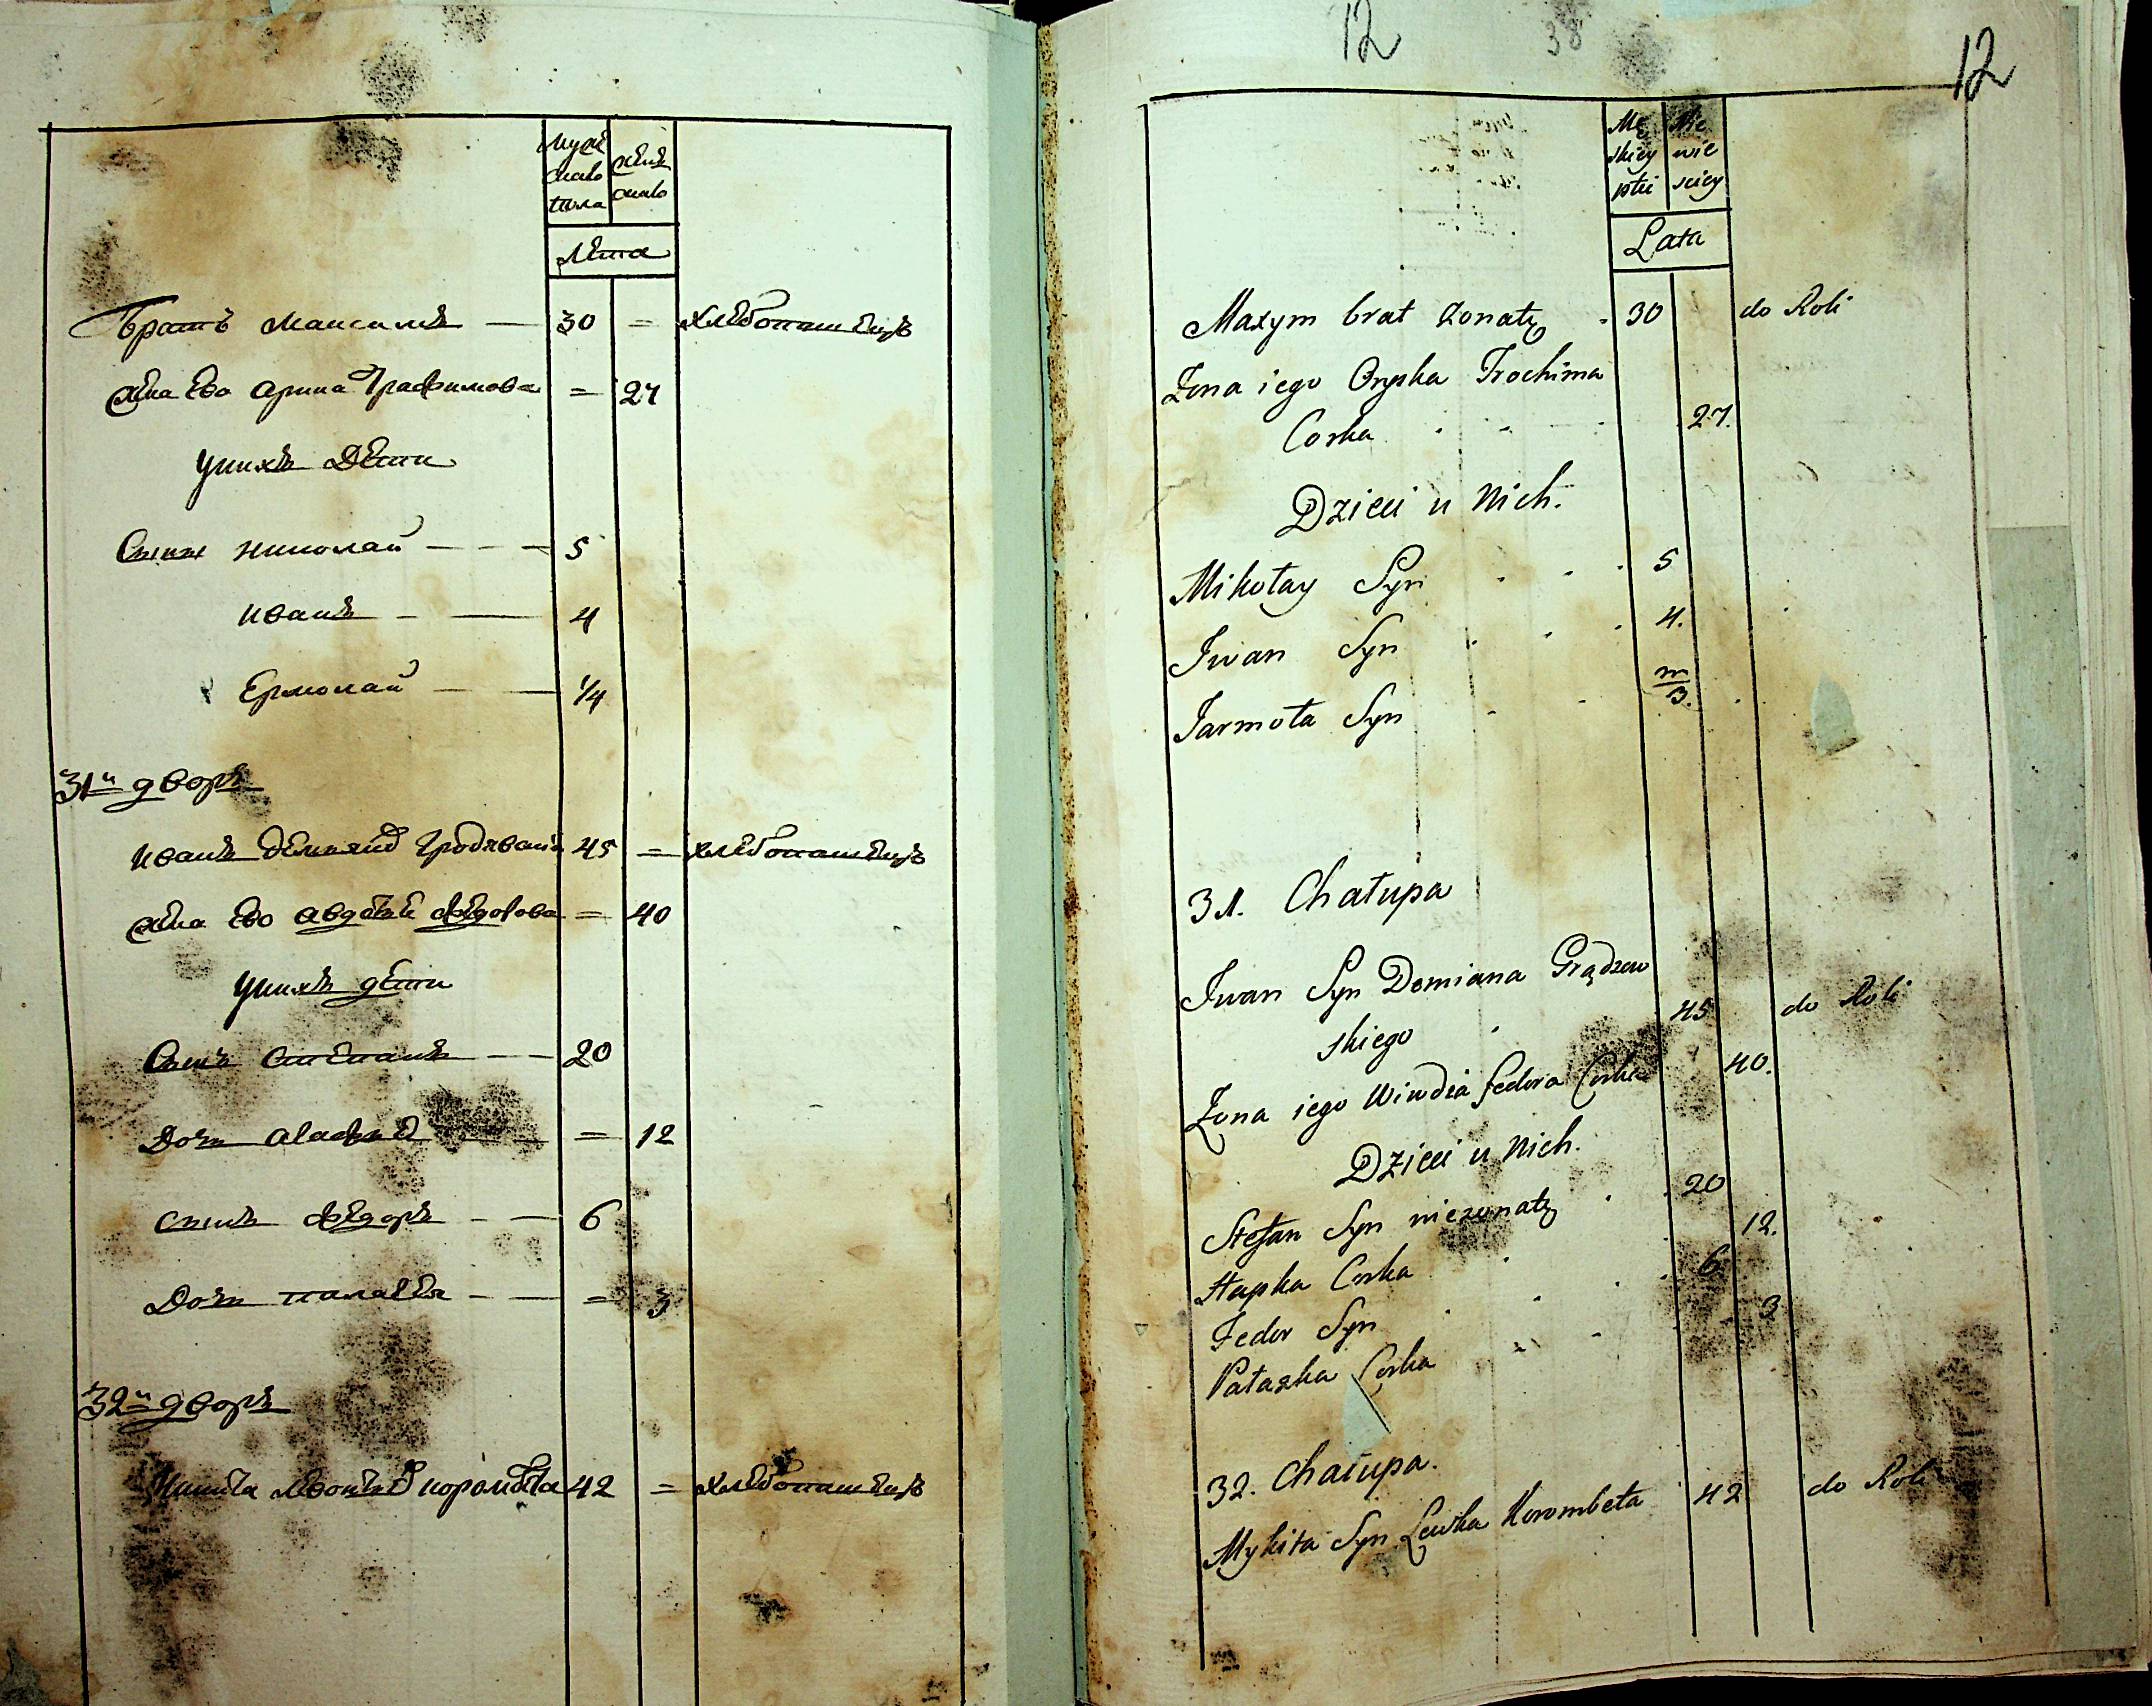 муже
скаго
пола
женс
скаго
Лѣта
Братъ Максимъ — 30 = хлѣбопашецъ
Жена Ево Арина Трафимова = 27
У нихъ Дѣти
Сыны Николай — — — 5
Иванъ — — 4
Ермолай — — 1/4
31й дворъ
Иванъ Демянов 45 = хлѣбопашецъ
Жена Ево Авдотья Федорова = 40
У нихъ дѣти
Сынъ Степанъ — — 20
Дочь Агафия = 12
Сынъ Федоръ — — 6
Дочь Палагея — — = 3
32й дворъ
Никита 42 = хлѣбопашецъ
12
38
12
Mę
skiey
płci
Nie
wie
sciey
Lata
Maxym brat żonaty 30 do Roli
Żona iego Orypka Trochima
Corka 27.
Dzieci u Nich.
Mikołay Syn 5
Iwan Syn 4.
Jarmoła Syn m/3.
31. Chałupa
Iwan Syn Demiana Grądzew
skiego 45 do Roli
Żona iego Wiwdia Fedora Corka 40.
Dzieci u Nich.
Stefan Syn nieżonaty 20
Hapka Corka 12.
Fedor Syn 6
Pałażka Corka 3
32. Chałupa.
Mykita Syn Lewka Korombeta 42 do Roli